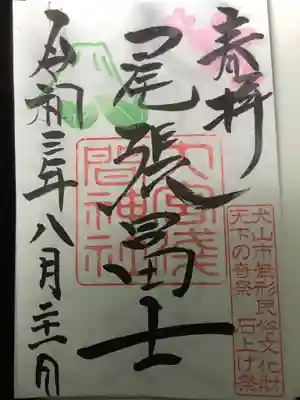 奉拝
尾張冨士
大宮浅
間神社
令和三年八月二十一日
犬山市無形民俗文化財
天下の奇祭 石上げ祭